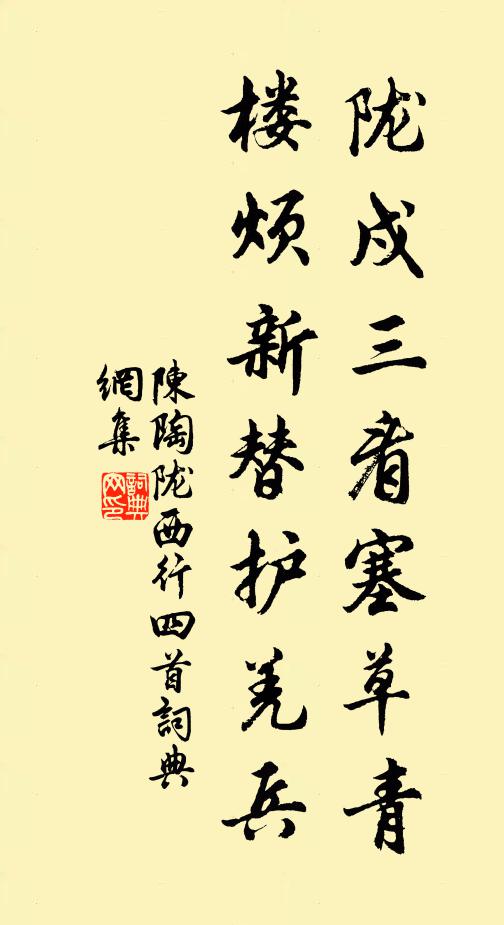 陇戍三看塞草青
楼烦新替护羌兵
陳陶陇西行四首詞典
網集
詞典
网印